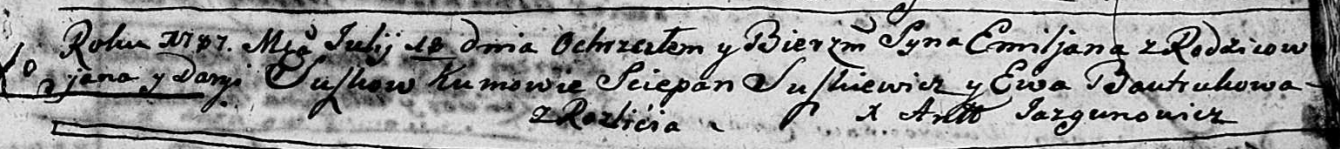 Roku 1787. Mca Julij 18 dnia Ochrzciłem y Bierzm Syna Emiljana z Rodzicow
jana y Daryi Suszkow Kumowie Sciepan Suszkiewicz y Ewa Bautrukowa
z Razlicia x Antt Jazgunowicz